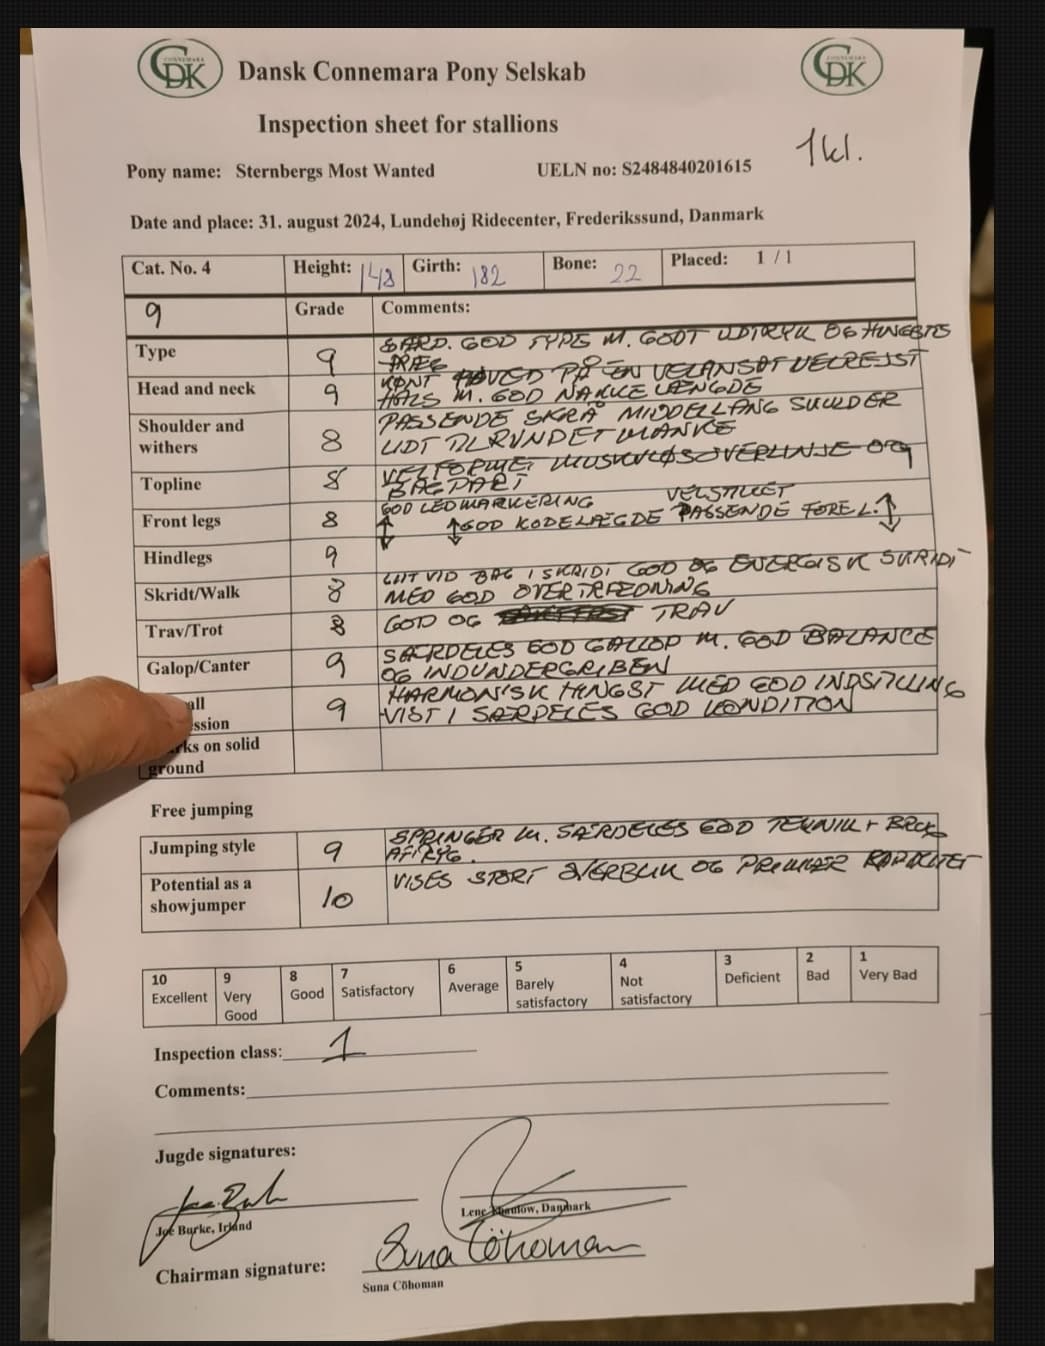 CONNEMARA
CDK
Dansk Connemara Pony Selskab
CONNEMARA
CDK
Inspection sheet for stallions
1 kl.
Pony name: Sternbergs Most Wanted UELN no: S2484840201615
Date and place: 31. august 2024, Lundehøj Ridecenter, Frederikssund, Danmark
Cat. No. 4 Height: 148 Girth: 182 Bone: 22 Placed: 1 / 1
9 Grade Comments:
Type 9 SÆRD. GOD TYPE M. GODT UDTRYK OG HINGSTE
PRÆG
Head and neck 9 KØNT HOVED PÅ EN VELANSAT VELREJST
HALS M. GOD NAKKE LÆNGDE
Shoulder and withers 8 PASSENDE SKRÅ MIDDELLANG SKULDER
LIDT TILRUNDET MANKE
Topline 8 VELFORMET MUSKULØS OVERLINJE OG
BAGPART
Front legs 8 GOD LEDMARKERING VELSTILLET
GOD KODELÆGDE PASSENDE FORE L.
Hindlegs 9
Skridt/Walk 8 LIDT VID BAG I SKRIDT GOD OG ENERGISK SKRIDT
MED GOD OVERTRÆDNING
Trav/Trot 8 GOD OG TRAV
Galop/Canter 9 SÆRDELES GOD GALLOP M. GOD BALANCE
OG INDUNDERGRIBEN
all
ssion 9 HARMONISK HINGST MED GOD INDSTILLING
VIST I SÆRDELES GOD KONDITION
rks on solid
ground
Free jumping
Jumping style 9 SPRINGER M. SÆRDELES GOD TEKNIK + BRUG
AF RYG.
Potential as a
showjumper 10 VISES STORT OVERBLIK OG PRIMÆR KAPACITET
10 Excellent
9 Very Good
8 Good
7 Satisfactory
6 Average
5 Barely satisfactory
4 Not satisfactory
3 Deficient
2 Bad
1 Very Bad
Inspection class: 1
Comments:
Jugde signatures:
Joe Burke, Irland
Lene, Danmark
Chairman signature: Suna Cöhoman
Suna Cöhoman